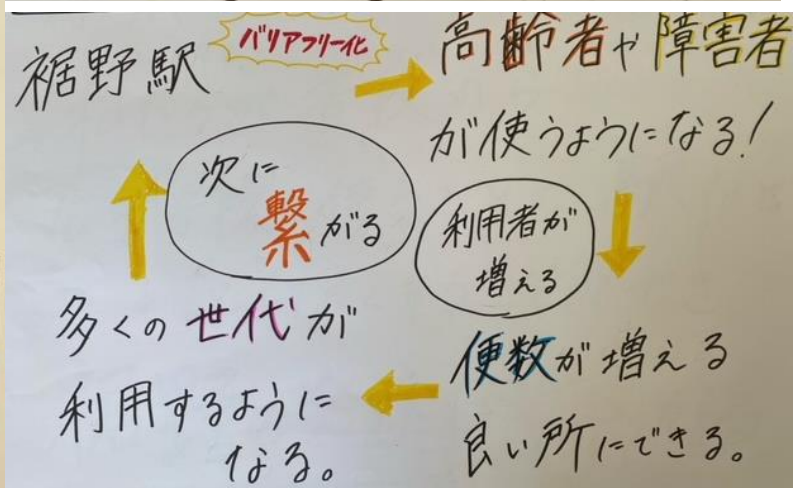 裾野駅
バリアフリー化
高齢者や障害者
が使うようになる!
次に
繋がる
利用者が
増える
便数が増える
良い所にできる。
多くの世代が
利用するように
なる。